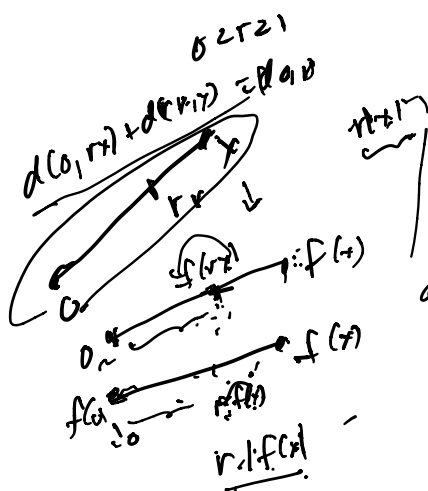 0 < r < 1
d(0, rx) + d(rx, x) = d(0, x)
x
r x
0
f(rx)
f(x)
0
f(x)
f(0)
r f(x)
0
r · |f(x)|